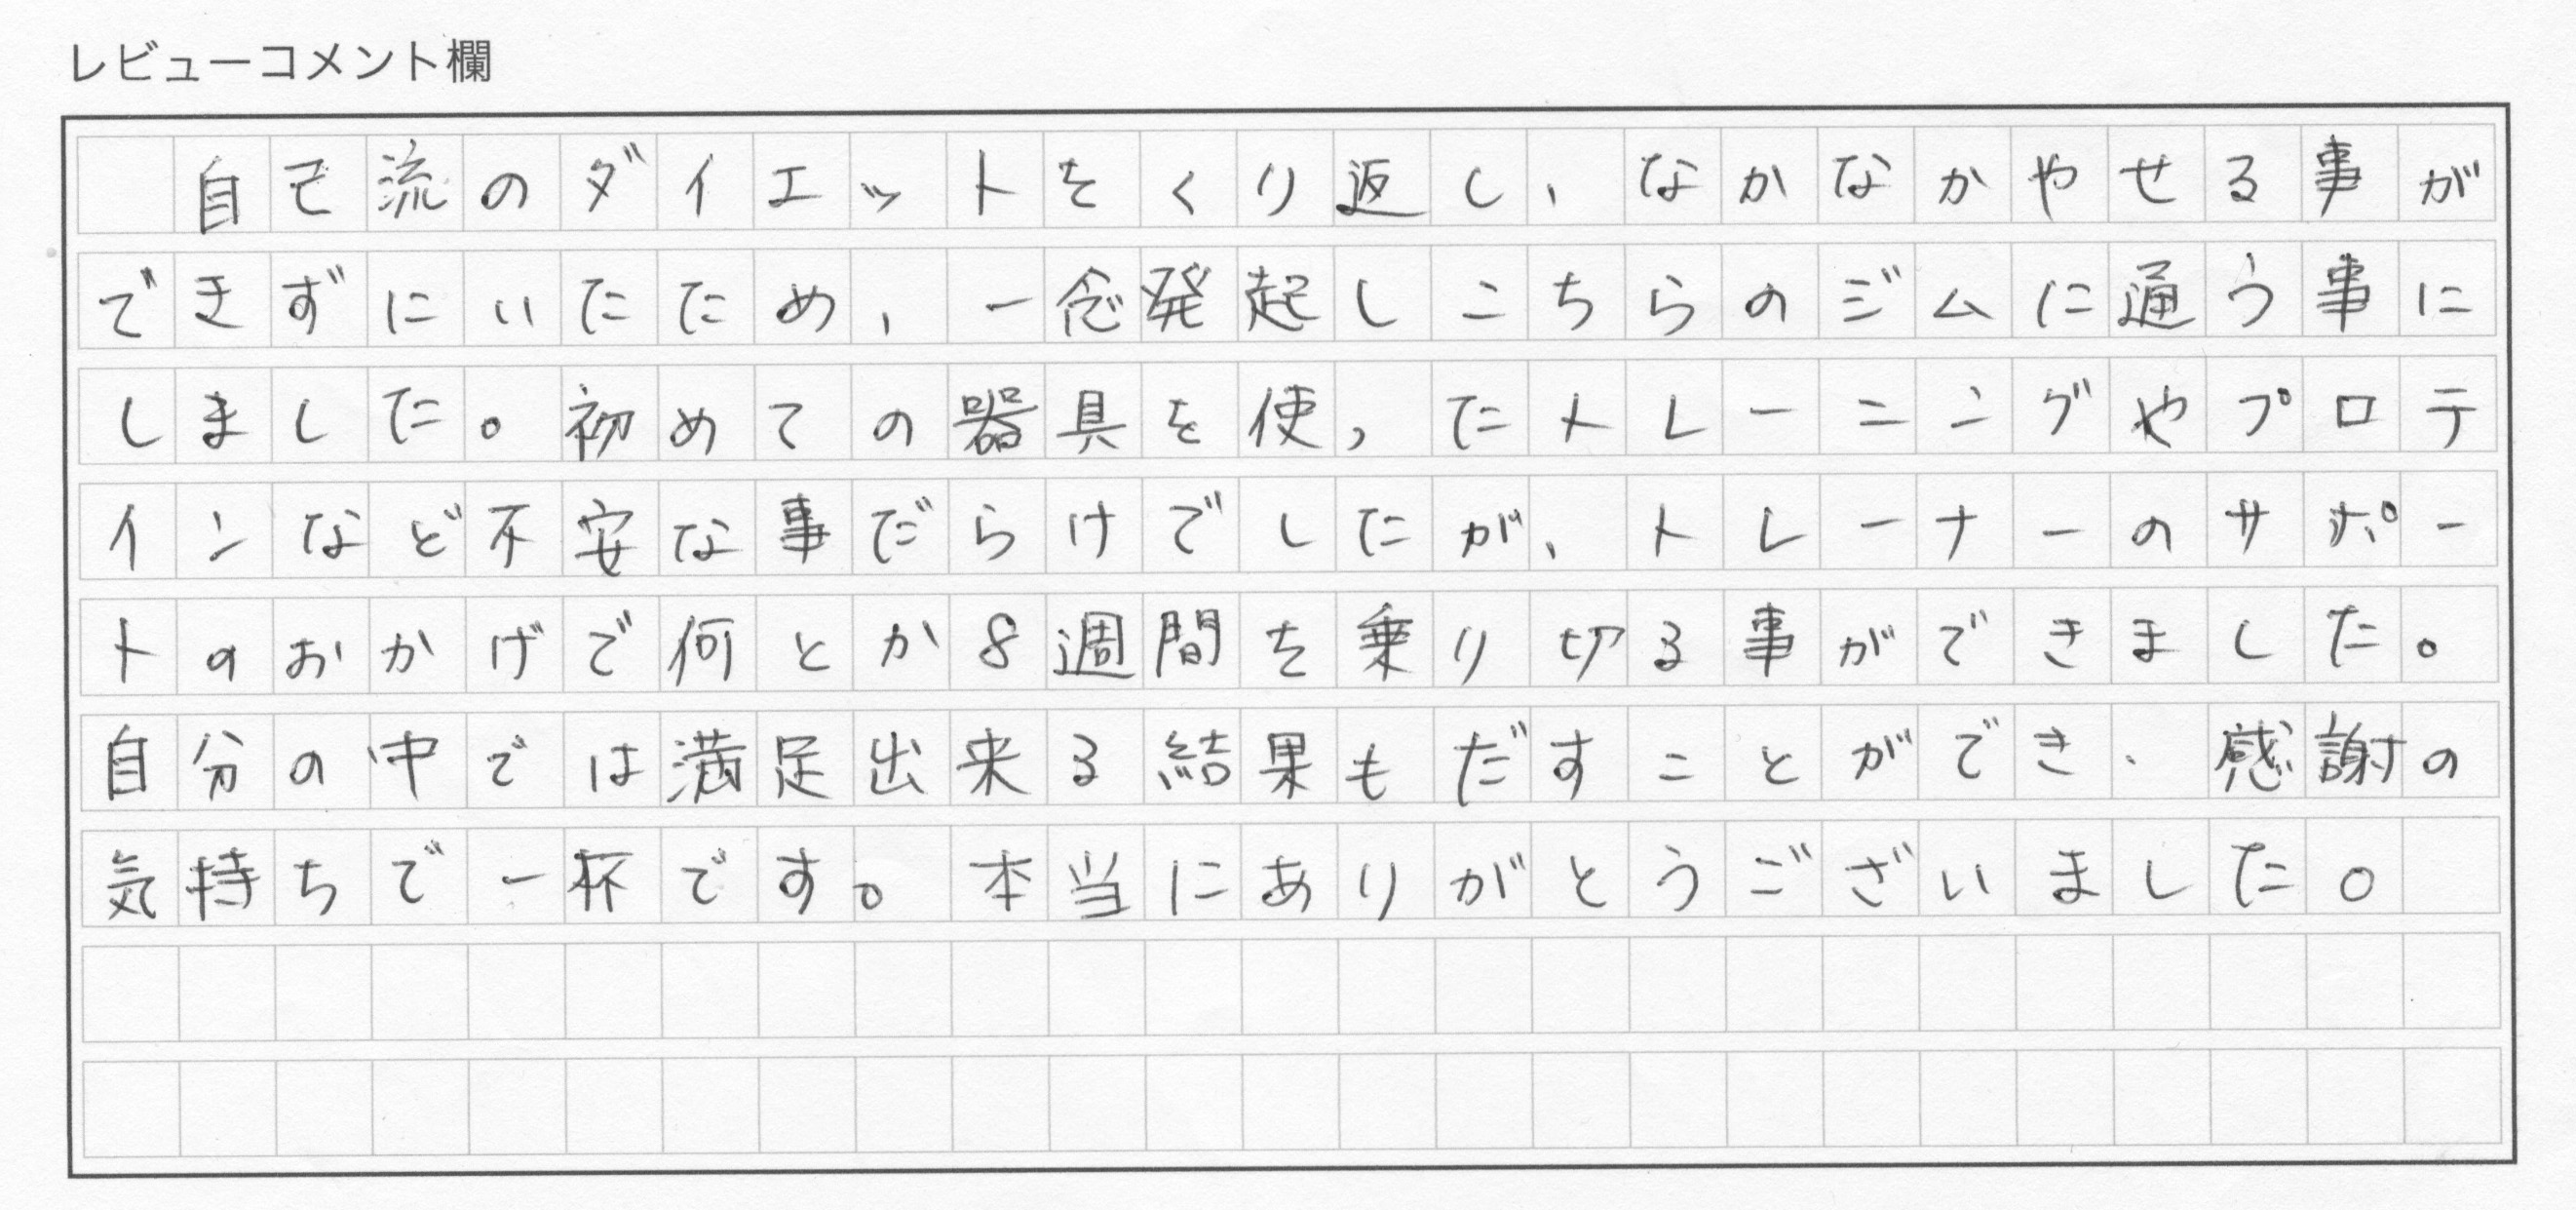 レビューコメント欄
自己流のダイエットをくり返し、なかなかやせる事が
できずにいたため、一念発起しこちらのジムに通う事に
しました。初めての器具を使ったトレーニングやプロテ
インなど不安な事だらけでしたが、トレーナーのサポー
トのおかげで何とか8週間を乗り切る事ができました。
自分の中では満足出来る結果もだすことができ、感謝の
気持ちで一杯です。本当にありがとうございました。